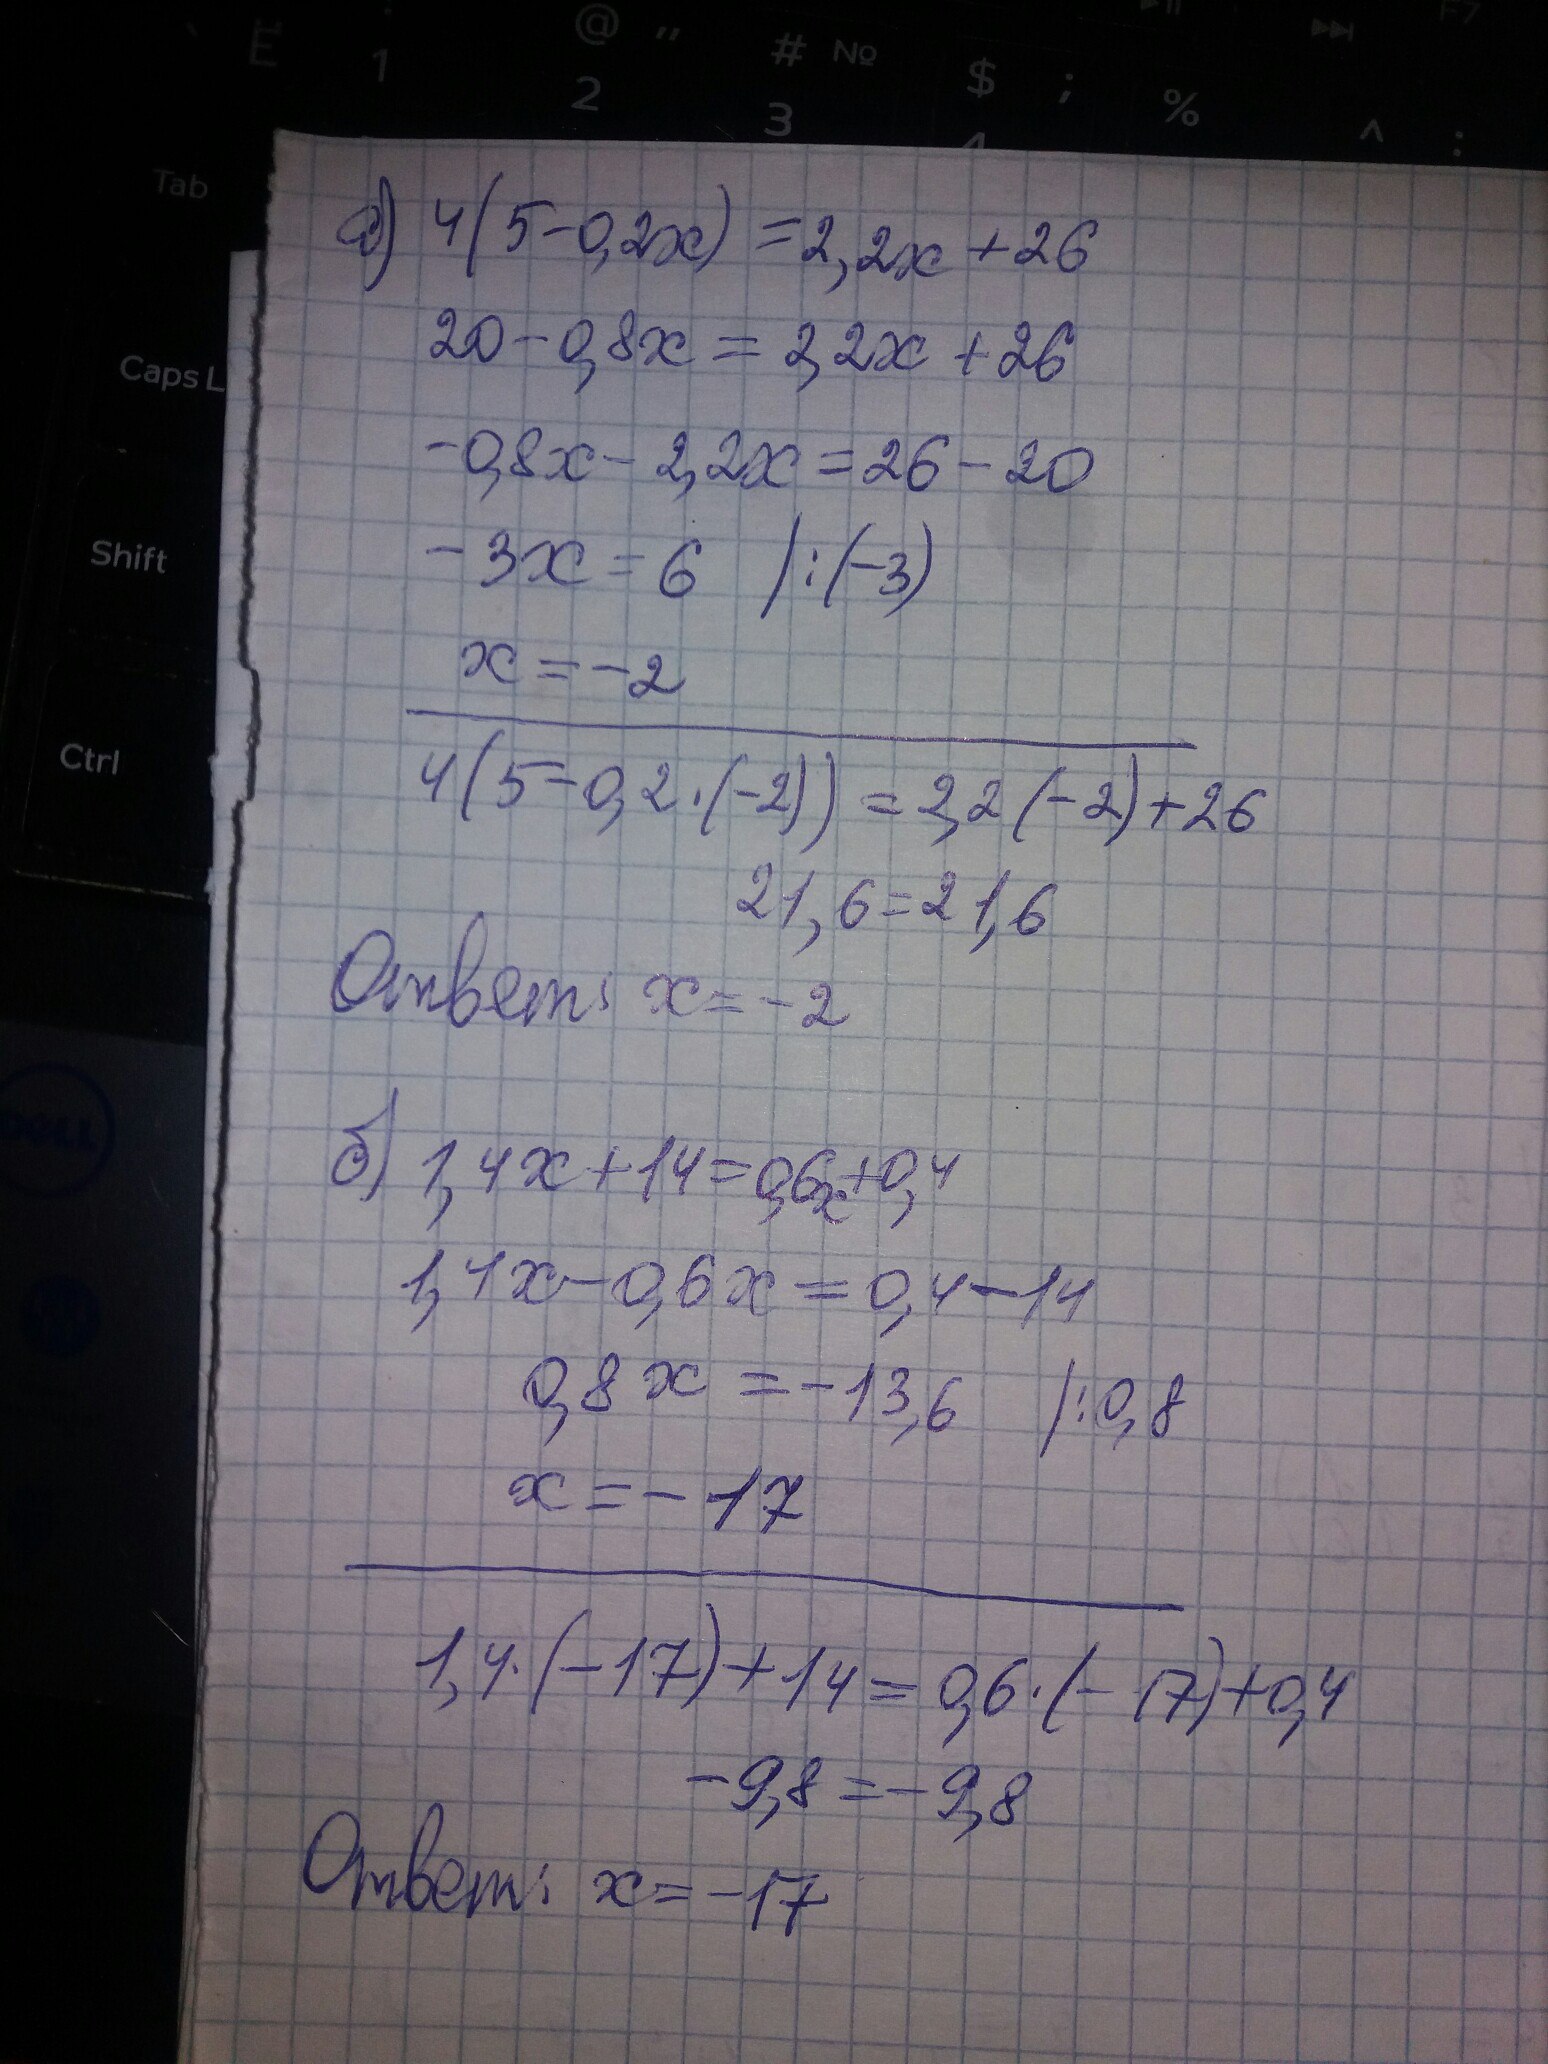 Ё 1 @ " 2 # № 3 $ ; 4 % ^ : F7
Tab
Caps L
Shift
Ctrl
DELL
а) 4(5-0,2x)=2,2x+26
20-0,8x=2,2x+26
-0,8x-2,2x=26-20
-3x=6 /:(-3)
x=-2
4(5-0,2·(-2))=2,2(-2)+26
21,6=21,6
Ответ: x=-2
б) 1,4x+14=0,6x+0,4
1,4x-0,6x=0,4-14
0,8x=-13,6 /:0,8
x=-17
1,4·(-17)+14=0,6·(-17)+0,4
-9,8=-9,8
Ответ: x=-17